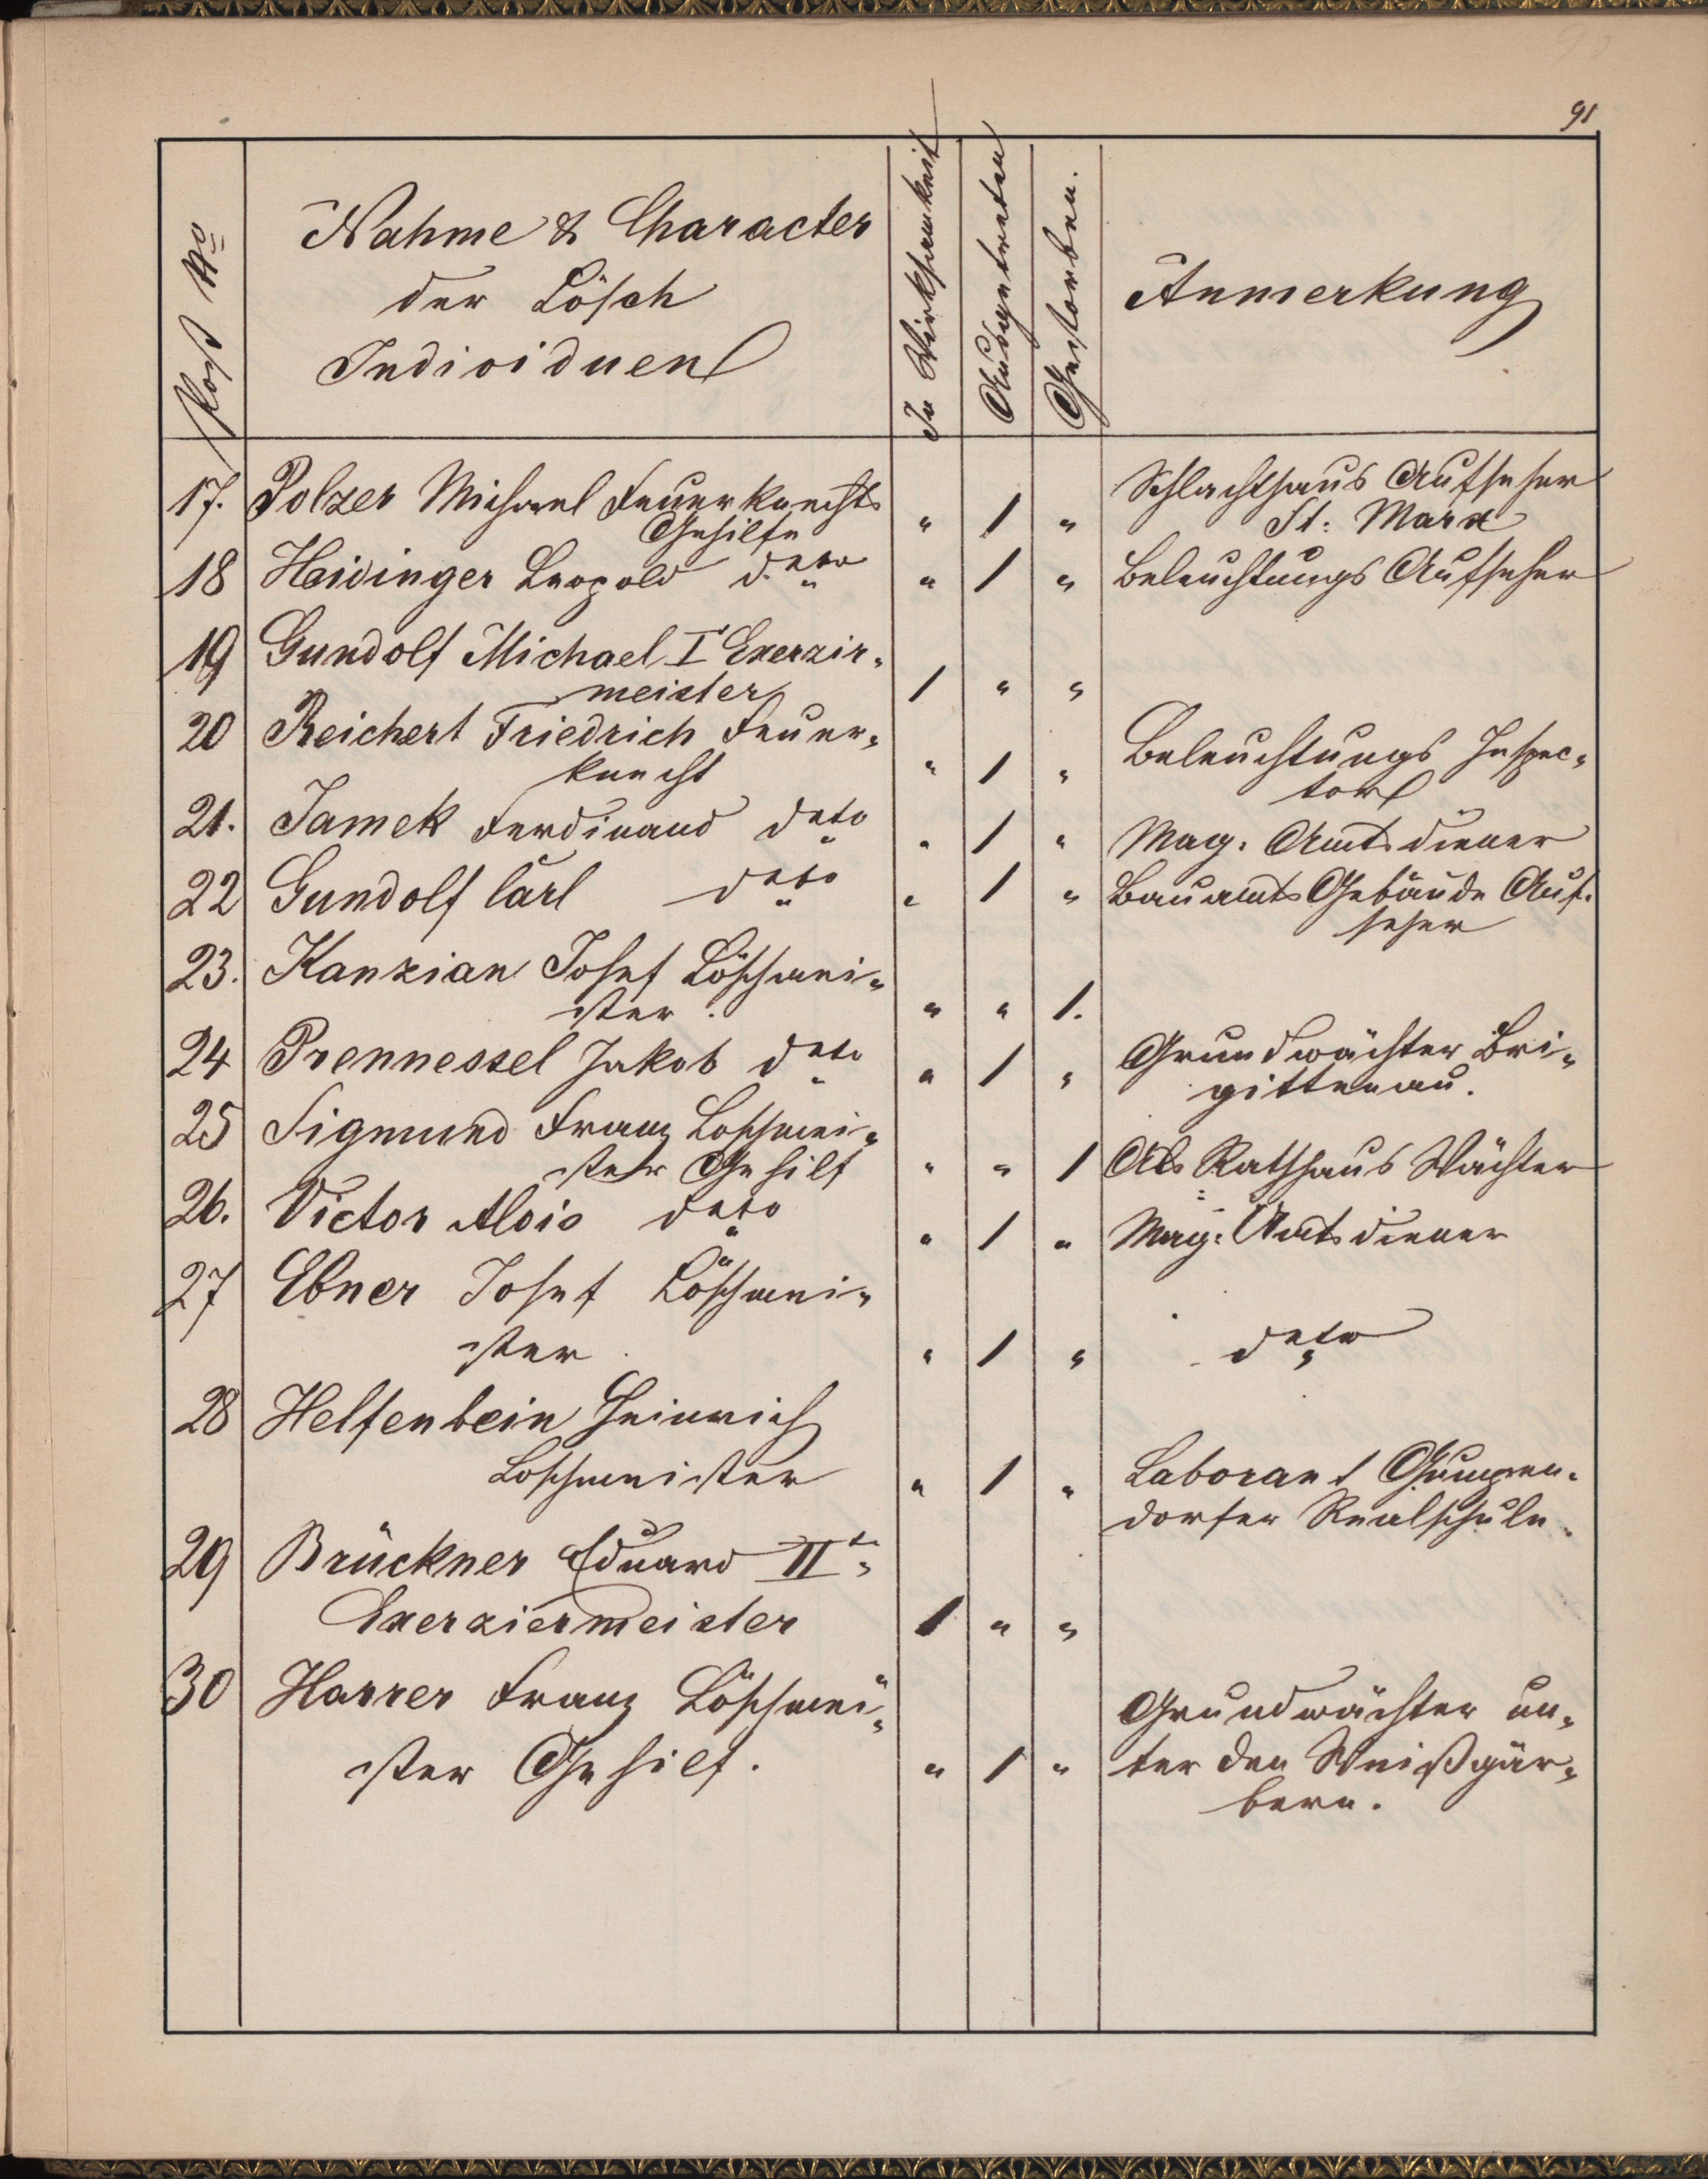 91
Post No
Nahme & Character
der Lösch
Individuen
In Wirksamkeit
Ausgetreten
Gestorben.
Anmerkung
17. Polzer Michael Feuerknechts " 1 " Schlachthaus Aufseher
Gehilfe St: Marx
18 Heidinger Leopold deto " 1 " Beleuchtungs Aufseher
19 Gundolf Michael I Exerzir-
meister 1 " "
20 Reichert Friedrich Feuer- " 1 " Beleuchtungs Inspec-
knecht tor
21. Jamek Ferdinand deto " 1 " Mag: Amtsdiener
22 Gundolf Carl deto " 1 " Bauamts Gebäude Auf-
seher
23. Kanzian Josef Löschmei-
ster. " " 1.
24 Prennessel Jakob deto " 1 " Grundwächter Bri-
gittenau.
25 Sigmund Franz Loschmei-
ster Gehilf " " 1 Als Rathhaus Wächter
26. Victor Alois deto " 1 " Mag: Amtsdiener
27 Ebner Josef Löschmei-
ster. " 1 " deto
28 Helfenbein Heinrich
Loschmeister " 1 " Laborant Gumpen-
dorfer Realschule.
29 Brückner Eduard IIter
Exerziermeister 1 " "
30 Harrer Franz Löschmei- Grundwächter un-
ster Gehilf. " 1 " ter den Weißgär-
bern.